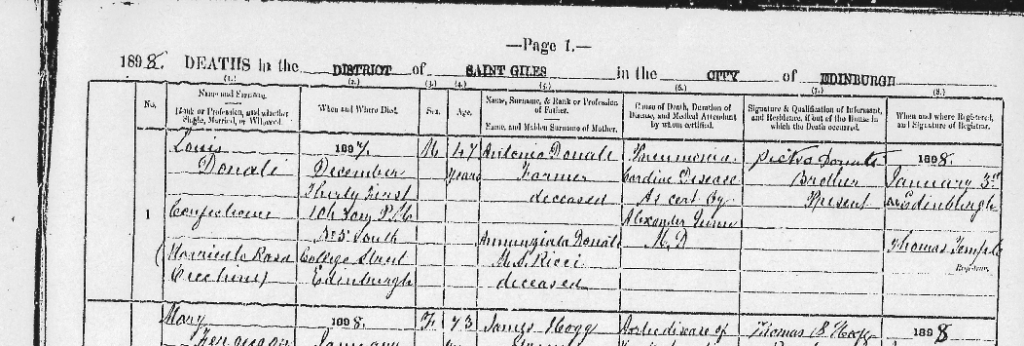 —Page 1.—
1898. DEATHS in the DISTRICT of SAINT GILES in the CITY of EDINBURGH
(1.) (2.) (3.) (4.) (5.) (6.) (7.) (8.)
No.
Name and Surname.
Rank or Profession, and whether Single, Married, or Widowed.
When and Where Died.
Sex.
Age.
Name, Surname, & Rank or Profession of Father.
Name, and Maiden Surname of Mother.
Cause of Death, Duration of Disease, and Medical Attendant by whom certified.
Signature & Qualification of Informant, and Residence, if out of the House in which the Death occurred.
When and where Registered, and Signature of Registrar.
1
Louis
Donati
Confectioner
(Married to Rosa
1897.
December
Thirty First
No 5 South
College Street
Edinburgh
M
47
years
Antonio Donati
Farmer
deceased
Annunziata Donati
M.S. Ricci
deceased
Pneumonia
Cardiac Disease
As cert by
Alexander
M.D
Pietro Donati
Brother
Present
1898.
January 3rd
at Edinburgh
Thomas Temple
Registrar.
Mary
Ferguson
1898.
January
F.
73
James Hogg
Aortic disease of
Thomas S Hogg
1898